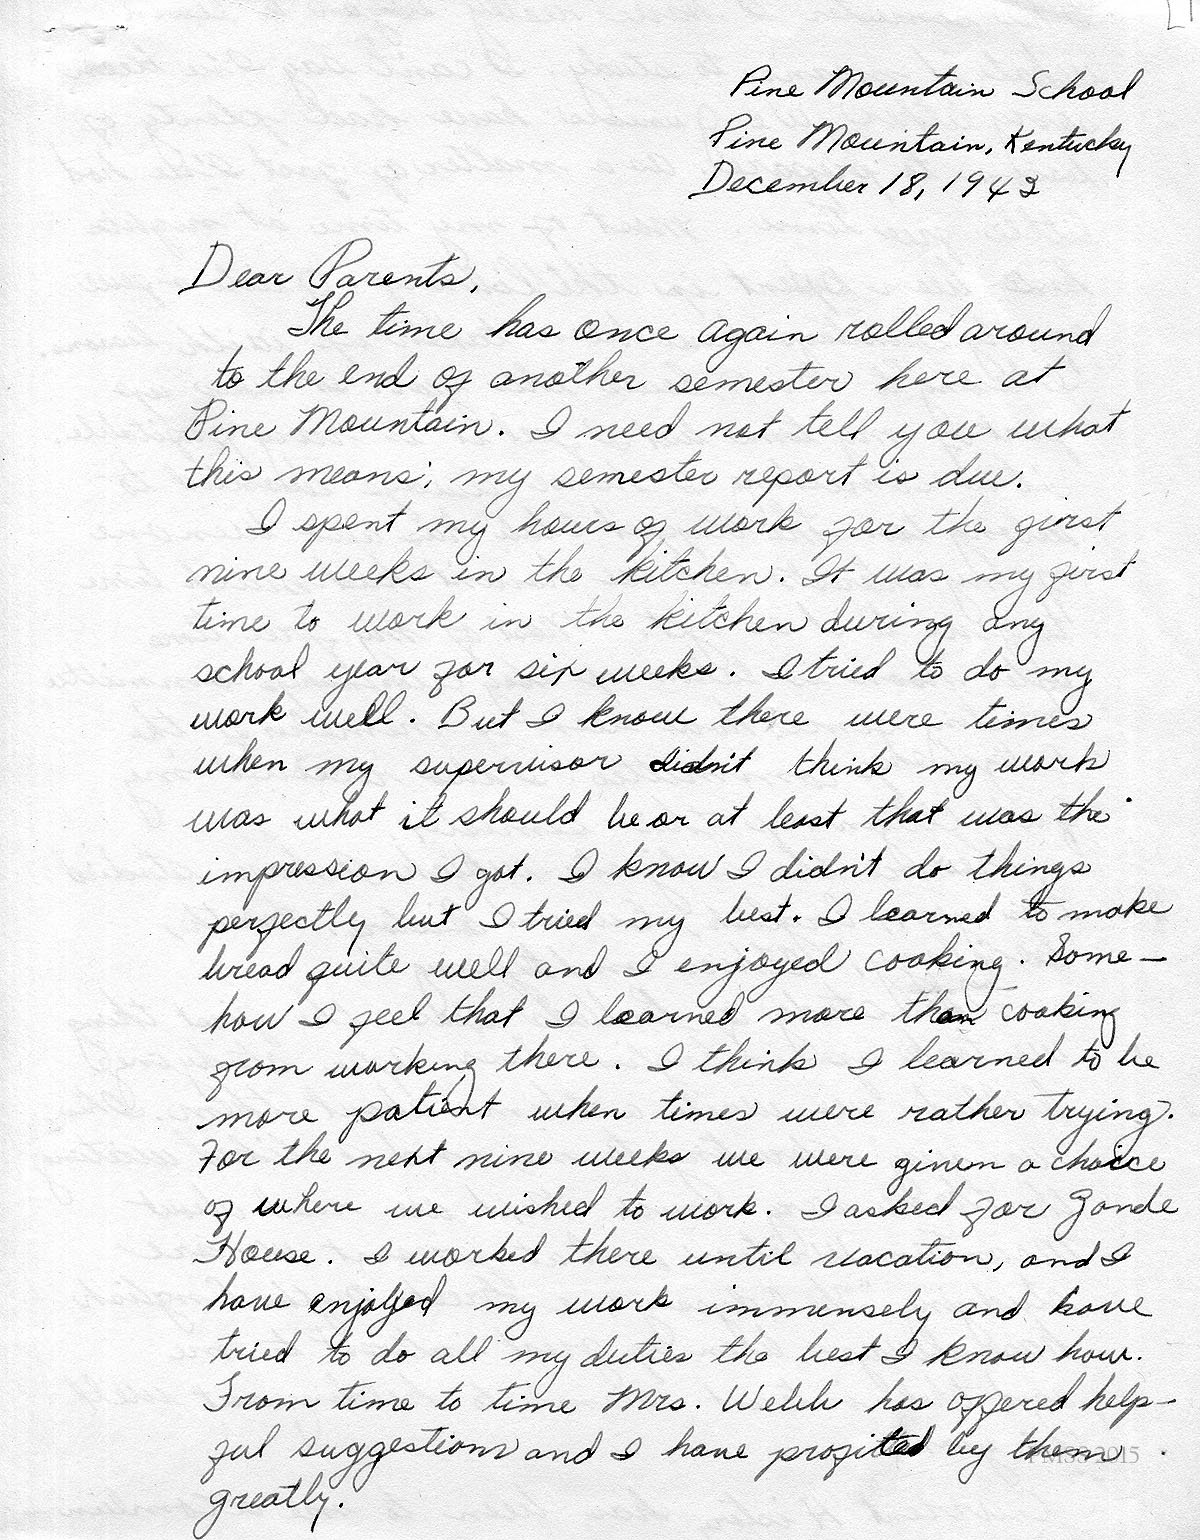 Pine Mountain School
Pine Mountain, Kentucky
December 18, 1943
Dear Parents,
The time has once again rolled around
to the end of another semester here at
Pine Mountain. I need not tell you what
this means; my semester report is due.
I spent my hours of work for the first
nine weeks in the kitchen. It was my first
time to work in the kitchen during any
school year for six weeks. I tried to do my
work well. But I know there were times
when my supervisor didn't think my work
was what it should be or at least that was the
impression I got. I know I didn't do things
perfectly but I tried my best. I learned to make
bread quite well and I enjoyed cooking. Some-
how I feel that I learned more than cooking
from working there. I think I learned to be
more patient when times were rather trying.
For the next nine weeks we were given a choice
of where we wished to work. I asked for Zande
House. I worked there until vacation, and I
have enjoyed my work immensely and have
tried to do all my duties the best I know how.
From time to time Mrs. Webb has offered help-
ful suggestions and I have profited by them
greatly.
PMSS 2015